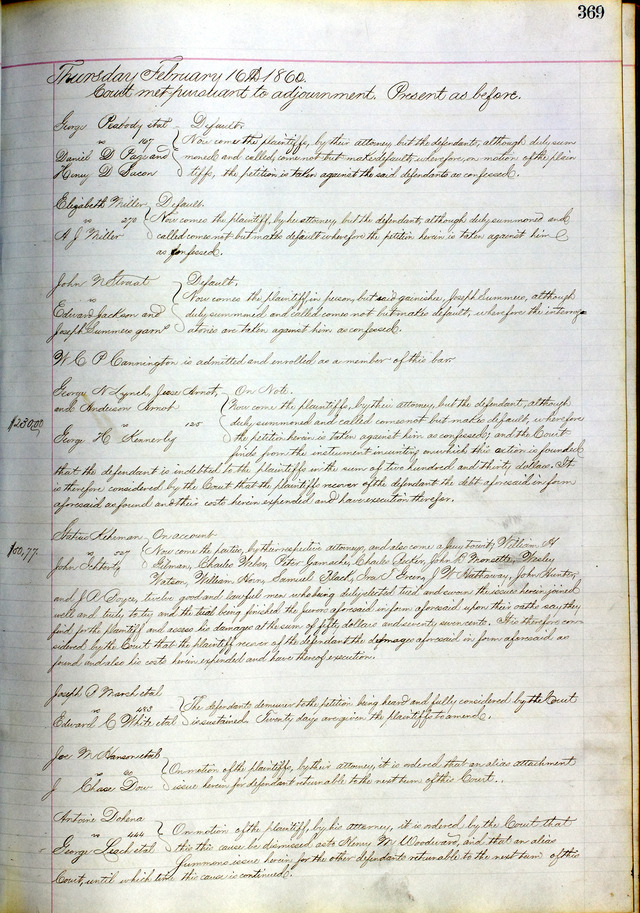 369
Thursday February 16th 1860.
Court met pursuant to adjournment. Present as before.
George Peabody etal Default.
vs 107 Now come the plaintiffs, by their attorney but the defendants, although duly sum
Daniel D Page and moned and called, come not but make default, wherefore, on motion of the plain
Henry D Bacon tiffs, the petition is taken against the said defendants as confessed.
Elizabeth Miller, Default.
vs 270 Now comes the plaintiff, by her attorney, but the defendant, although duly summoned and
A J Miller called comes not but makes default wherefore the petition herein is taken against him
as confessed.
John N Straat Default.
vs Now comes the plaintiff in person, but said garnishee, Joseph Summers, although
Edward Jackson and duly summoned and called comes not but makes default, wherefore the interrog
Joseph Summers garn atories are taken against him as confessed.
W C P Cannington is admitted and enrolled as a member of this bar.
George N Lynch, Jesse Arnot, On Note.
and Anderson Arnot Now come the plaintiffs, by their attorney, but the defendant, although
$230,00 vs 125 duly summoned and called comes not but makes default, wherefore
George H Kennerly the petition herein is taken against him as confessed; and the Court
finds from the instrument in writing on which this action is founded
that the defendant is indebted to the plaintiffs in the sum of two hundred and thirty dollars. It
is therefore considered by the Court that the plaintiffs recover of the defendant the debt aforesaid in form
aforesaid as found and their costs herein expended and have execution therefor.
Statius Kehrman On account
$50,77. vs 327 Now come the parties, by their respective attorneys, and also come a Jury towit, William H
John Gilman, Charles Weber, Peter Gamache, Charles Becker, John B Wesley
Watson, William Horn, Samuel Black, Ira I Green, J W Hathaway, John Hunter,
and J A Boyce, twelve good and lawful men who being duly elected tried and sworn the issues herein joined
well and truly to try and the trial being finished the jurors aforesaid in form aforesaid upon their oaths say they
find for the plaintiff and assess his damages at the sum of fifty dollars and seventy seven cents. It is therefore con
sidered by the Court that the plaintiff recover of the defendant the damages aforesaid in form aforesaid as
found and also his costs herein expended and have thereof execution.
Joseph P Marsh etal
vs 483 The defendants demurrer to the petition being heard and fully considered by the Court
Edward C White etal is sustained. Twenty days are given the plaintiffs to amend.
Joe W Hanson etal
vs 60 On motion of the plaintiffs, by their attorney, it is ordered that an alias attachment
J Chase Dow issue herein for defendant returnable to the next term of this Court.
Antoine Dohna
vs 444 On motion of the plaintiff, by his attorney, it is ordered by the Court that
George Leach etal this this cause be dismissed as to Henry M Woodward, and that an alias
Summons issue herein for the other defendants returnable to the next term of this
Court, until which time this cause is continued.